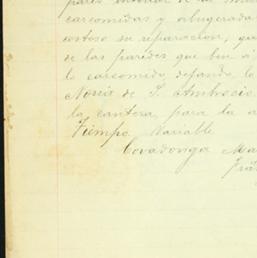 carcomidas y
costoso su reparacion, que
de las paredes que
lo carcomido, dejando lo
Noria de S. Ambrosio
la cantera, para la
Tiempo Variable
Covadonga Ma